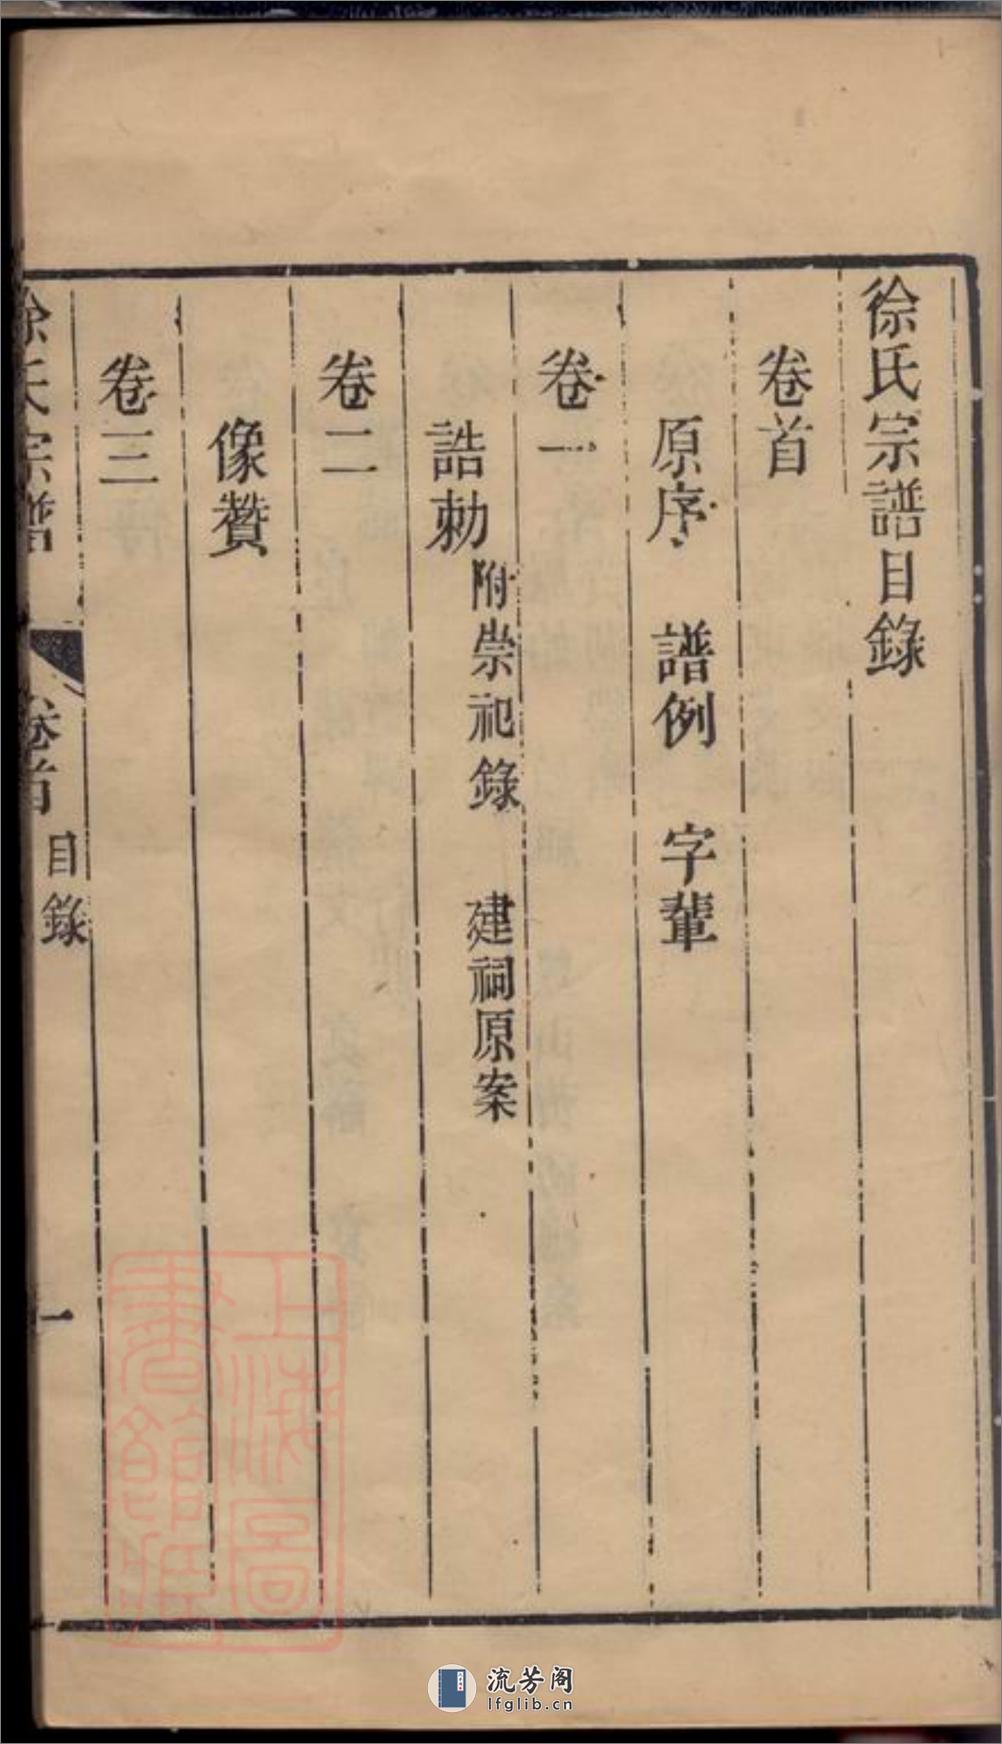 徐氏宗譜目錄
卷首
原序　譜例　字輩
卷一
誥勅附崇祀錄　建祠原案
卷二
像贊
卷三
徐氏宗譜　卷首　目錄　一
上海圖書館藏
流芳阁
lfglib.cn